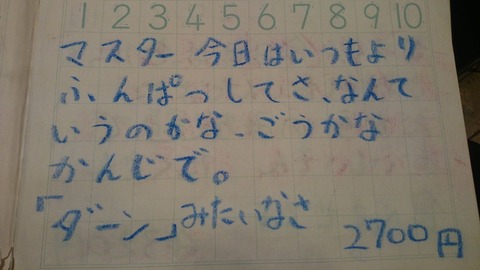 1 2 3 4 5 6 7 8 9 10
マスター 今日はいつもより
ふんぱっしてさ、なんて
いうのかな、ごうかな
かんじで。
「ダーン」みたいなさ
2700円